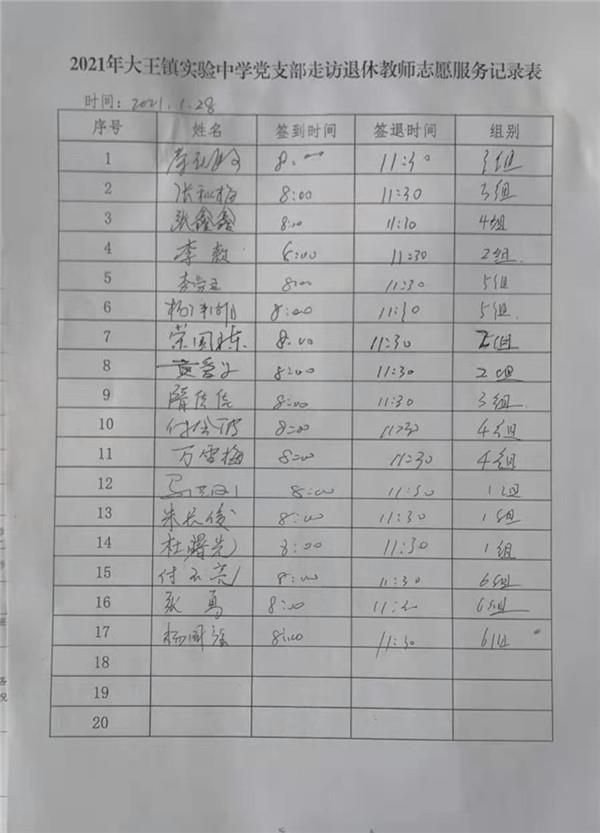 2021年大王镇实验中学党支部走访退休教师志愿服务记录表
时间：2021.1.28
序号 姓名 签到时间 签退时间 组别
1 8:00 11:30 3组
2 张 梅 8:00 11:30 3组
3 张鑫鑫 8:00 11:30 4组
4 李毅 8:00 11:30 2组
5 李 8:00 11:30 5组
6 杨 8:00 11:30 5组
7 荣国栋 8:00 11:30 2组
8 黄 8:00 11:30 2组
9 隋佳佳 8:00 11:30 3组
10 付 8:00 11:30 4组
11 万雪梅 8:00 11:30 4组
12 马 8:00 11:30 1组
13 朱长俊 8:00 11:30 1组
14 杜曙光 8:00 11:30 1组
15 付 亮 8:00 11:30 6组
16 张勇 8:00 11:30 6组
17 杨国强 8:00 11:30 6组
18
19
20